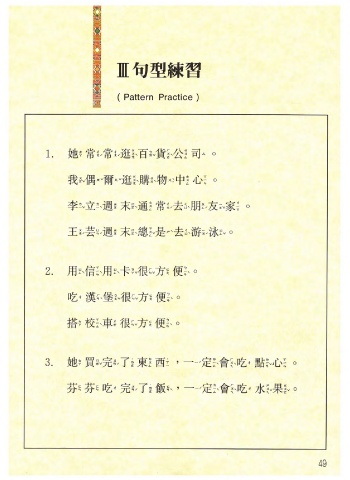 III 句型練習
( Pattern Practice )
1. 她常常逛百貨公司。
我偶爾逛購物中心。
李立週末通常去朋友家。
王芸週末總是去游泳。
2. 用信用卡很方便。
吃漢堡很方便。
搭校車很方便。
3. 她買完了東西，一定會吃點心。
芬芬吃完了飯，一定會吃水果。
49